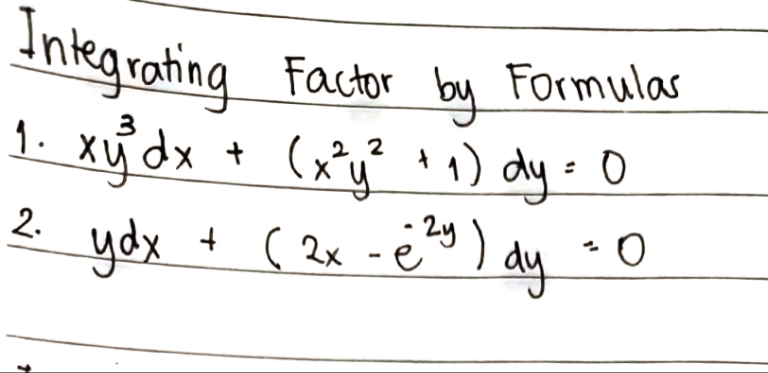 Integrating Factor by Formulas
1. xy³dx + (x²y² + 1) dy = 0
2. ydx + (2x - e⁻²ʸ) dy = 0